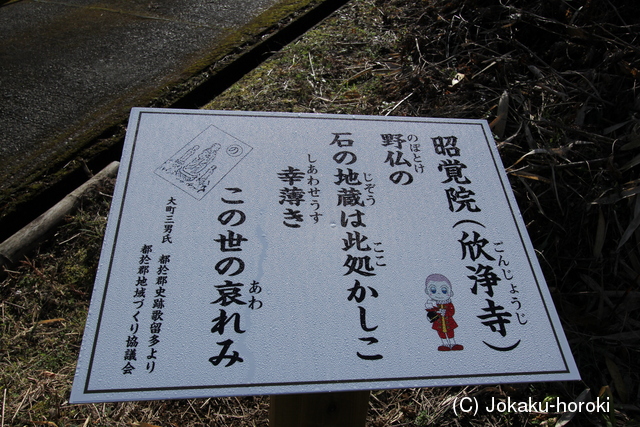 昭覚院（欣浄寺）
ごんじょうじ
野仏の
のぼとけ
石の地蔵は此処かしこ
じぞう
ここ
幸薄き
しあわせうす
この世の哀れみ
あわ
の
大町三男氏 都於郡史跡歌留多より
都於郡地域づくり協議会
(C) Jokaku-horoki